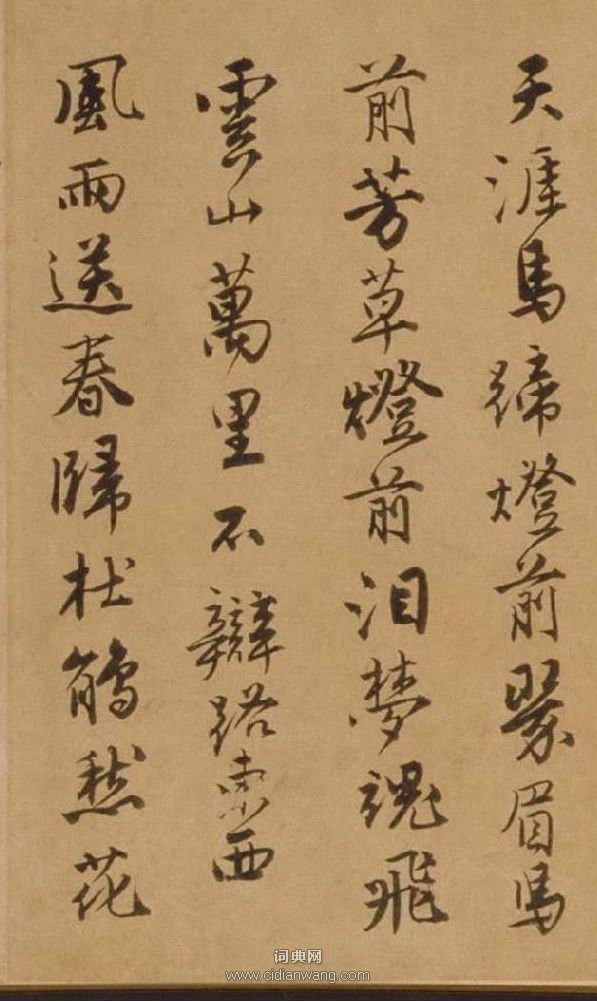 天涯馬蹄燈前翠眉馬
前芳草燈前泪夢魂飛
雲山萬里不辯路東西
風雨送春歸杜鵑愁花
词典网
www.cidianwang.com